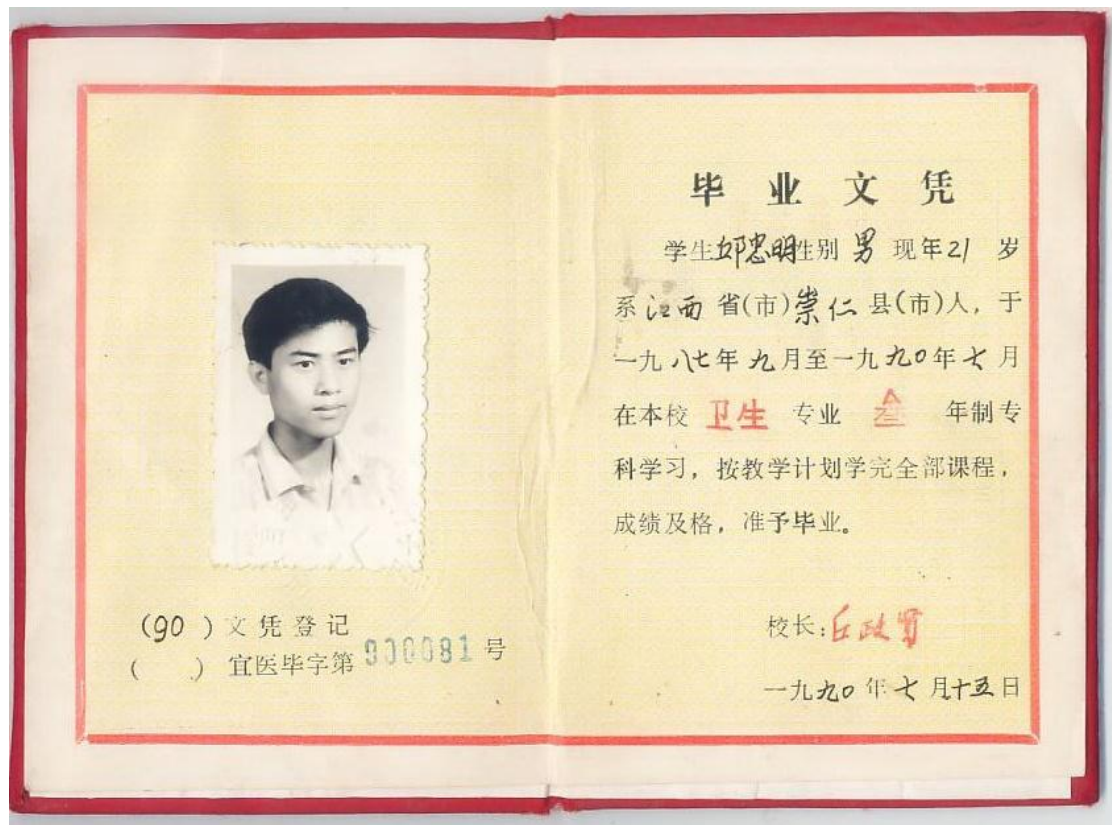 (90 ) 文凭登记
(    ) 宜医毕字第 900081 号
毕业文凭
学生邱忠明性别 男 现年21 岁
系江西省(市)崇仁县(市)人，于
一九八七年九月至一九九0年七月
在本校 卫生 专业 叁 年制专
科学习，按教学计划学完全部课程，
成绩及格，准予毕业。
校长：丘政贤
一九九0年七月十五日